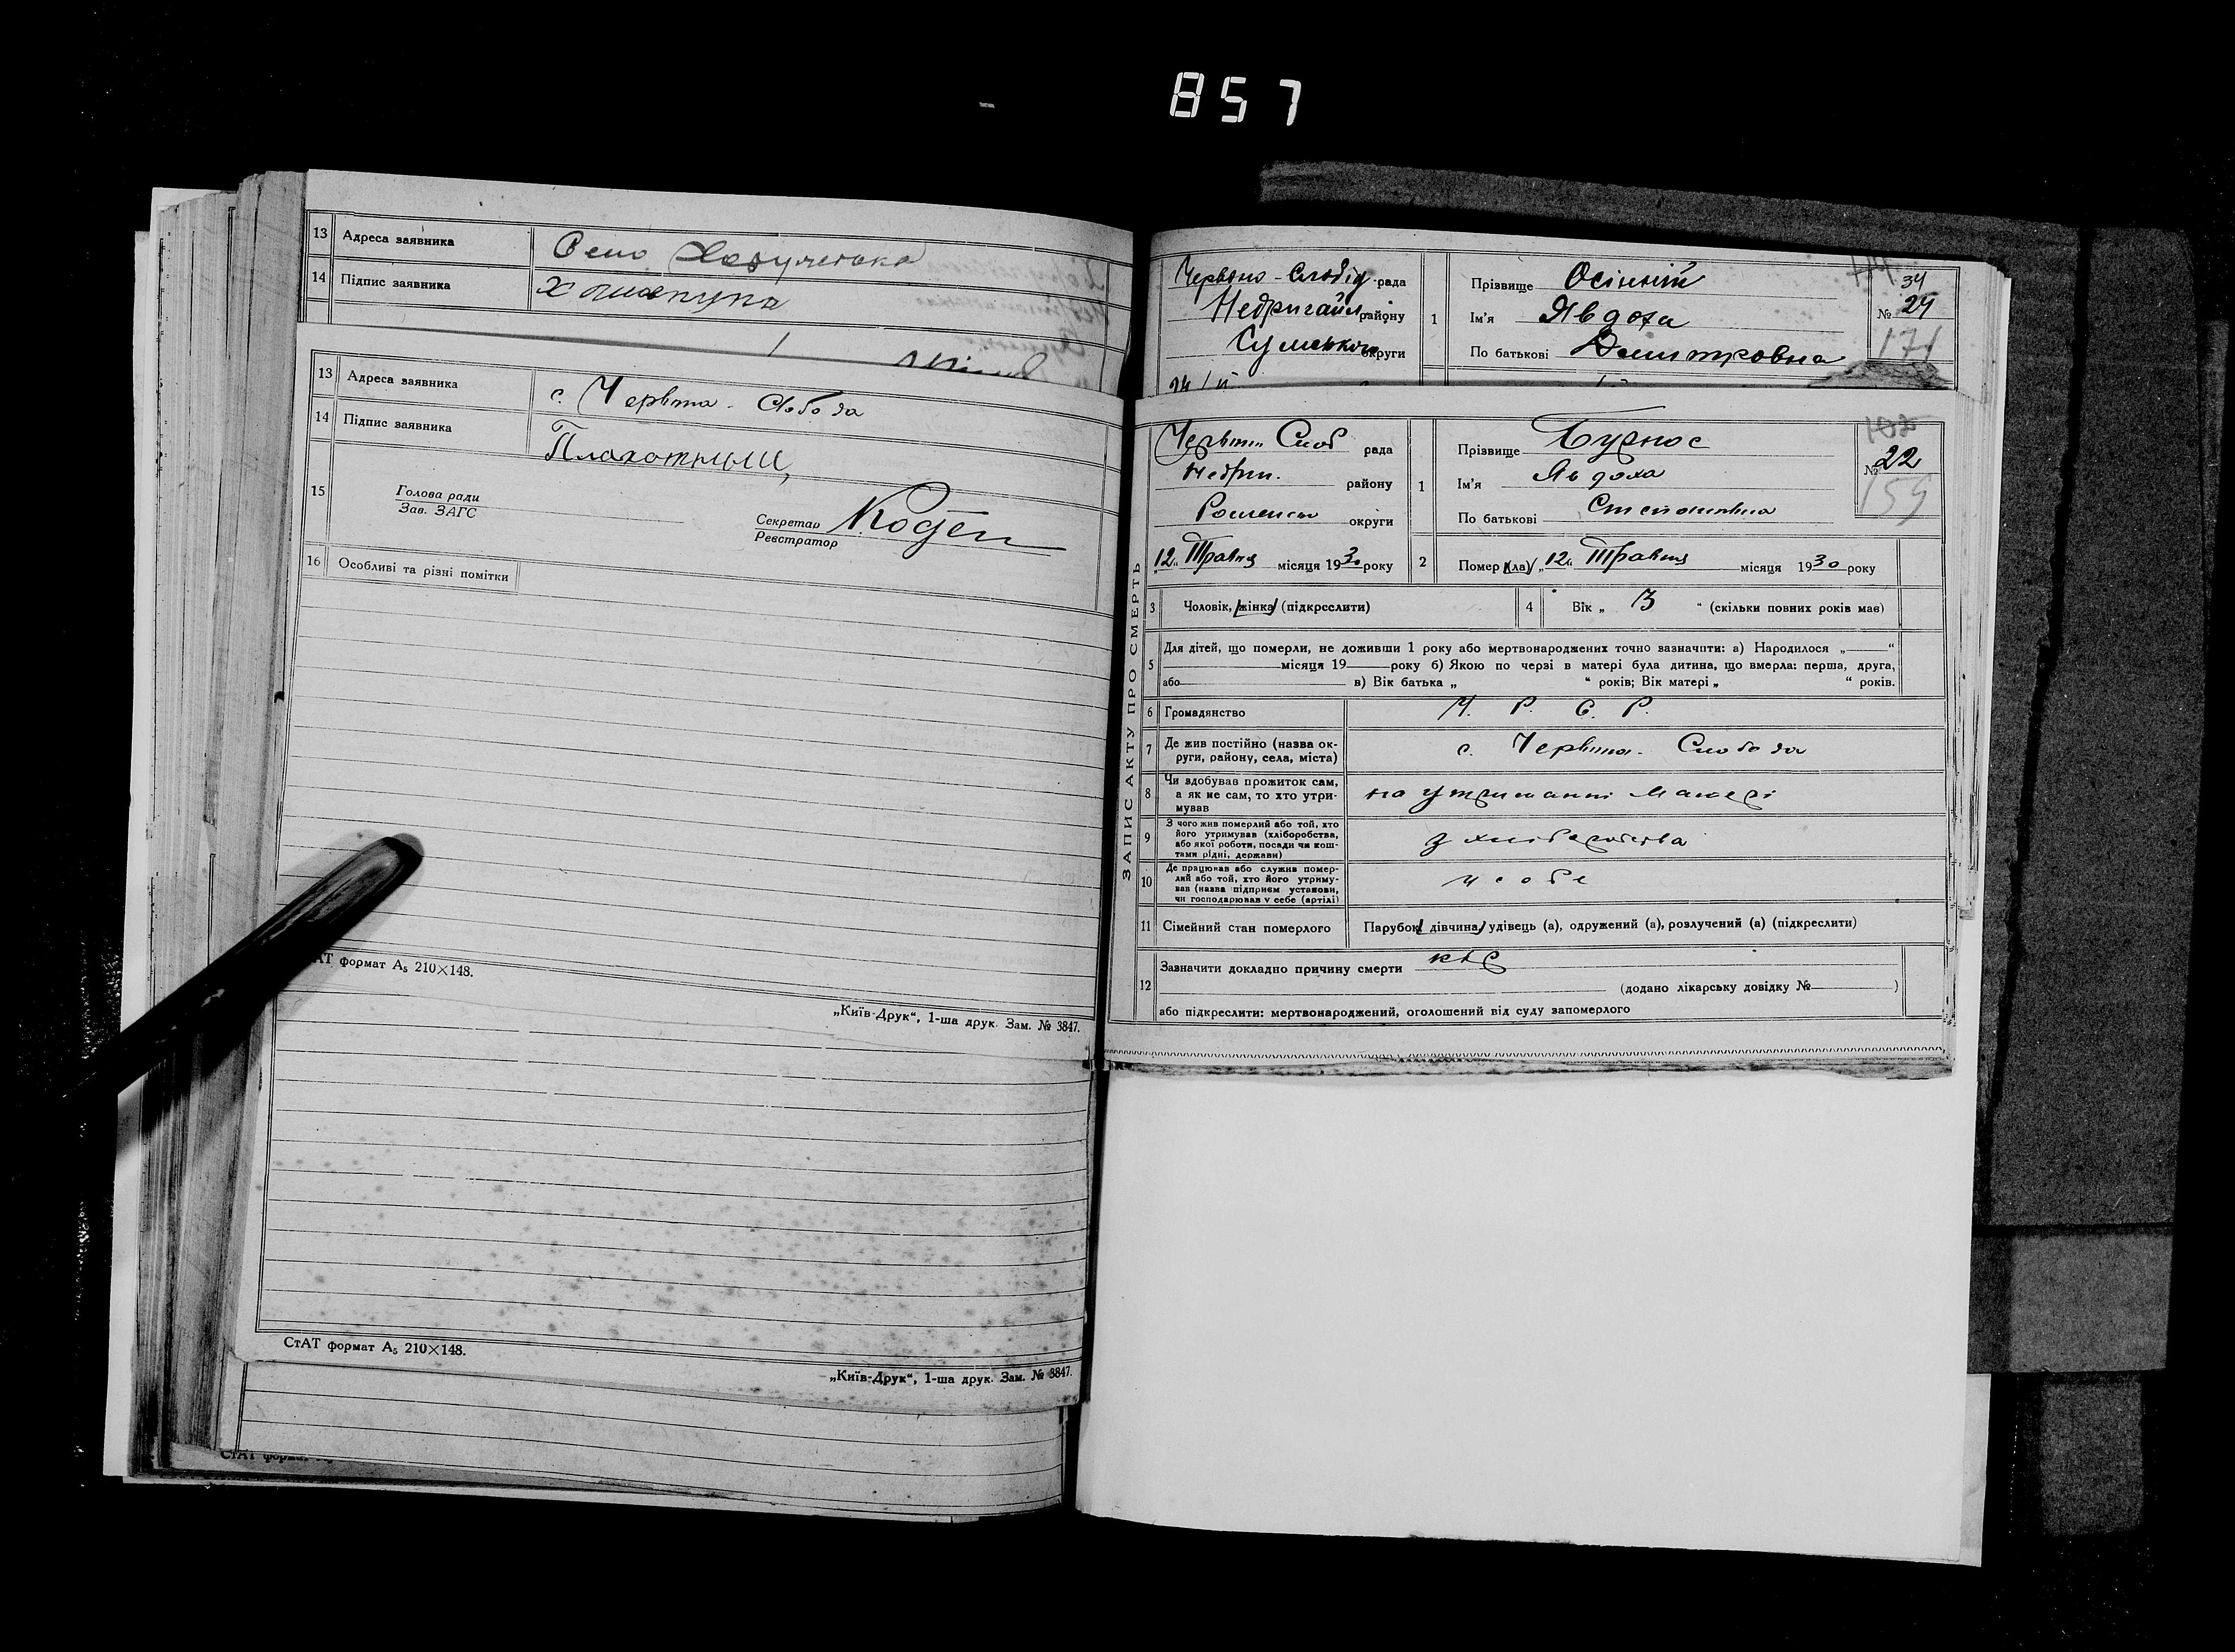 857
13 Адреса заявника Село
14 Підпис заявника
13 Адреса заявника с. Червона-Слобода
14 Підпис заявника Плахотниц
15 Голова ради
Зав. ЗАГС
Секретар
Реєстратор
16 Особливі та різні помітки
АТ формат А5 210×148.
„Київ-Друк“, 1-ша друк. Зам. № 3847.
СтАТ формат А5 210×148.
„Київ-Друк“, 1-ша друк. Зам. № 3847.
СтАТ формат
Червоно-Слобід рада
Недригайл району
Сумської округи
1 Прізвище Осінній
Ім'я Явдоха
По батькові Дмитровна
34
№ 24
171
ЗАПИС АКТУ ПРО СМЕРТЬ
Червон Слоб рада
Недриг. району
Роменськ округи
„12„ Травня місяця 1930 року
1 Прізвище Буднос
Ім'я Явдоха
По батькові Степановна
102
№ 22
159
2 Помер (ла) „12„ Травня місяця 1930 року
3 Чоловік, жінка (підкреслити)
4 Вік „ 3 “ (скільки повних років має)
5 Для дітей, що померли, не доживши 1 року або мертвонароджених точно зазначити: а) Народилося „ “
місяця 19 року б) Якою по черзі в матері була дитина, що вмерла: перша, друга,
або в) Вік батька „ “ років; Вік матері „ “ років.
6 Громадянство У. Р. С. Р.
7 Де жив постійно (назва округи, району, села, міста) с. Червона-Слобода
8 Чи здобував прожиток сам, а як не сам, то хто утримував на утриманні матері
9 З чого жив померлий або той, хто його утримував (хліборобства, або якої роботи, посади чи коштами рідні, держави) з хліборобства
10 Де працював або служив померлий або той, хто його утримував (назва підприєм установи, чи господарював у себе (артілі) у себе
11 Сімейний стан померлого Парубок, дівчина, удівець (а), одружений (а), розлучений (а) (підкреслити)
12 Зазначити докладно причину смерти кір
(додано лікарську довідку № )
або підкреслити: мертвонароджений, оголошений від суду запомерлого